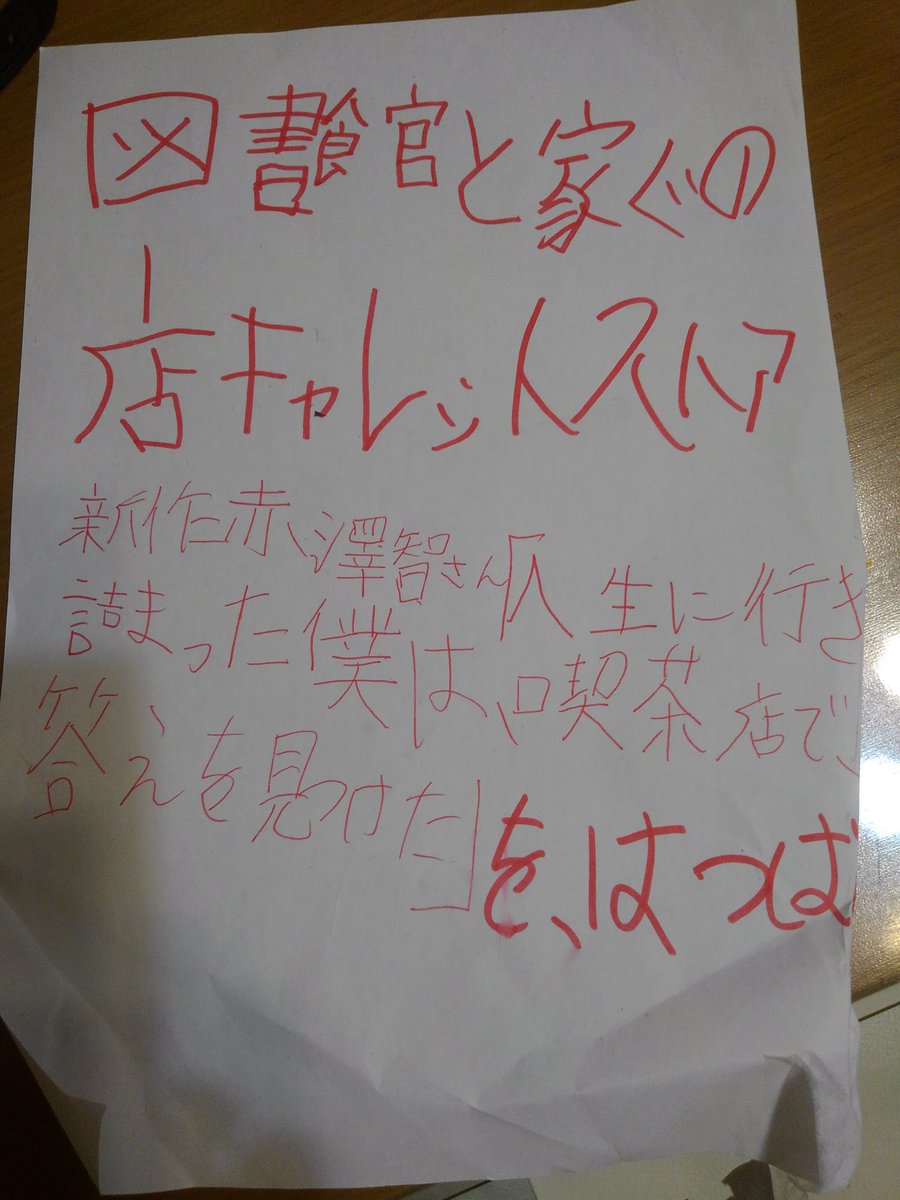 図書館と家ぐの
店キャレットストア
新作赤澤智さん「人生に行き
詰まった僕は、喫茶店で
答えを見つけた」を、はつば